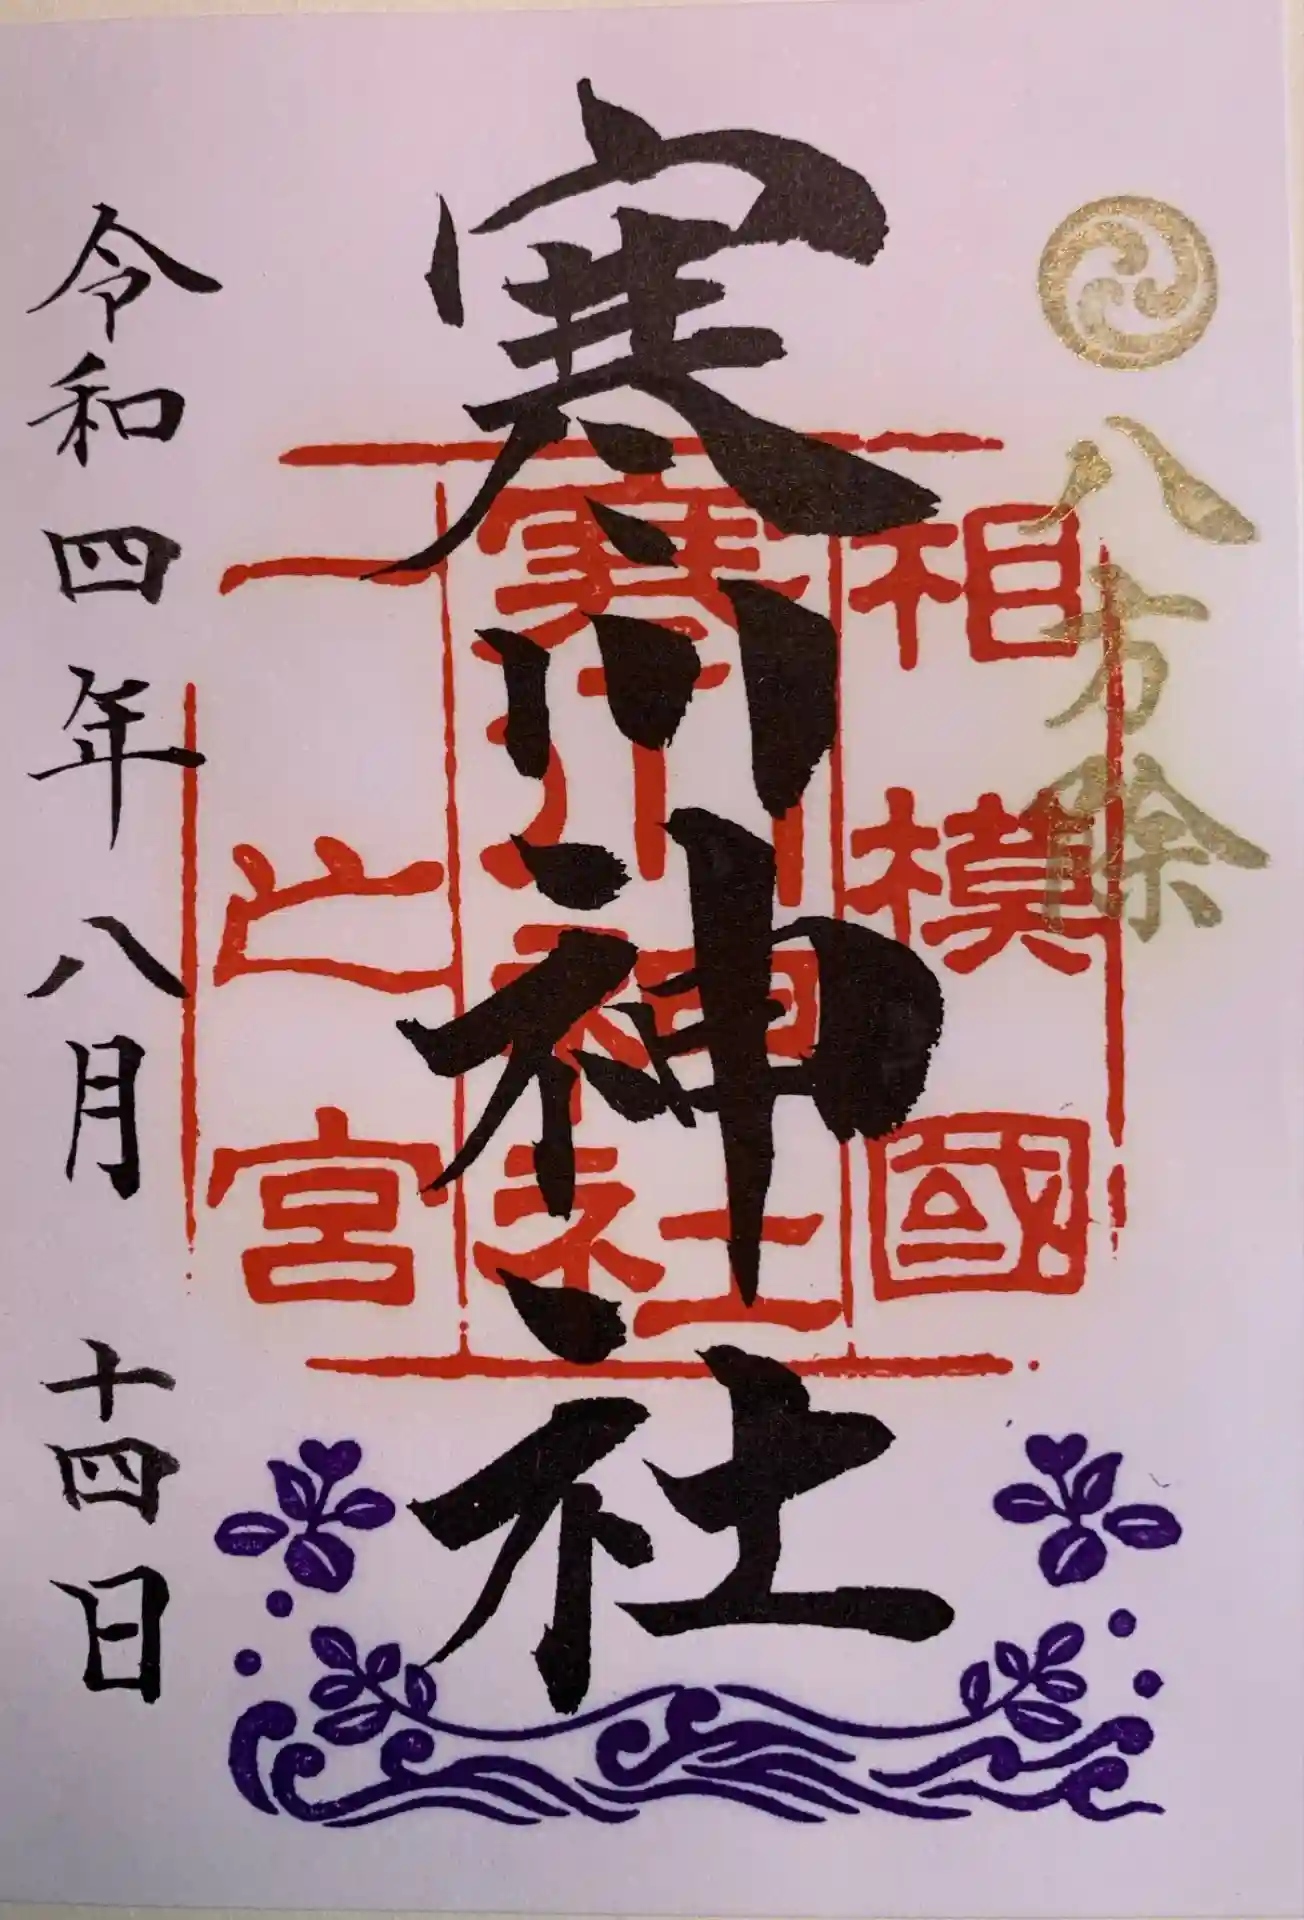 八方除
寒川神社
相模國
寒川神社
一之宮
令和四年八月十四日